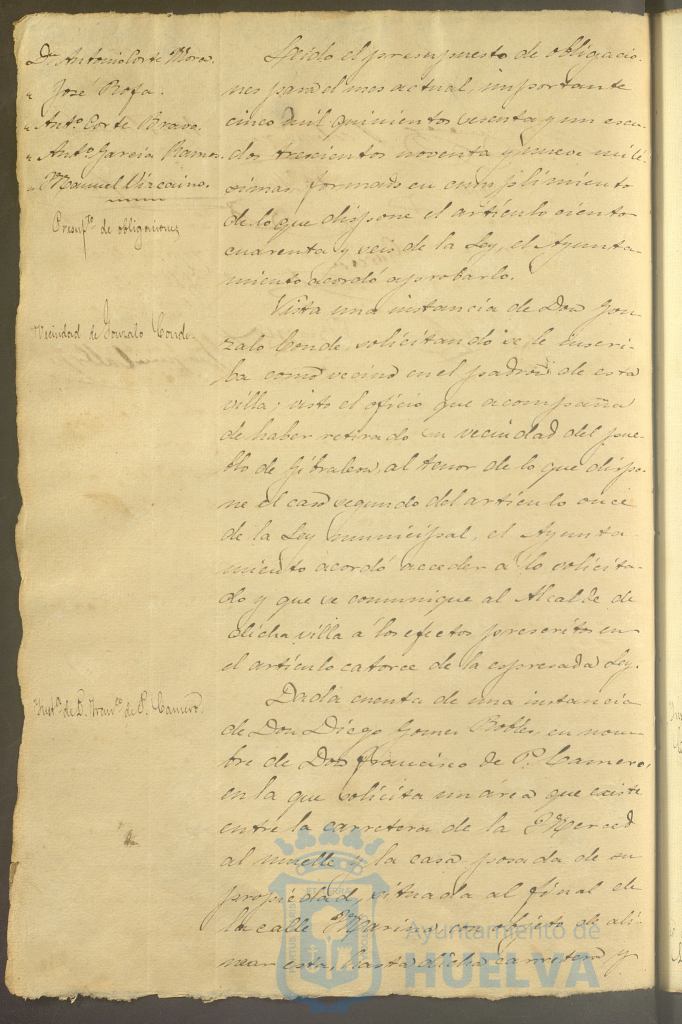 D. Antonio Corte Mora.
" José Rofa.
" Antº Corte Bravo.
" Antº García Ramos
" Manuel Vizcaino.
Presupto de obligaciones
Vecindad de Gonzalo Conde
Instª de D. Franco de P. Camero
Leido el presupuesto de obligacio-
nes para el mes actual, importante
cinco mil quinientos sesenta y un escu-
dos trescientos noventa y nueve milé-
simas formado en cumplimiento
de lo que dispone el artículo ciento
cuarenta y seis de la Ley, el Ayunta-
miento acordó aprobarlo.
Vista una instancia de Don Gon-
zalo Conde, solicitando se le inscri-
ba como vecino en el padron de esta
villa; visto el oficio que acompaña
de haber retirado su vecindad del pue-
blo de Gibraleon, al tenor de lo que dispo-
ne el caso segundo del artículo once
de la Ley municipal, el Ayunta-
miento acordó acceder a lo solicita-
do y que se comunique al Alcalde de
dicha villa á los efectos prescritos en
el artículo catorce de la espresada Ley.
Dada cuenta de una instancia
de Don Diego Gomez Robles, en nom-
bre de Don Francisco de P. Camero,
en la que solicita un área que existe
entre la carretera de la Merced
al muelle y la casa posada de su
propiedad, situada al final de
la calle Marina, con objeto de ali-
near esta, hasta dicha carretera y
Ayuntamiento de
HUELVA